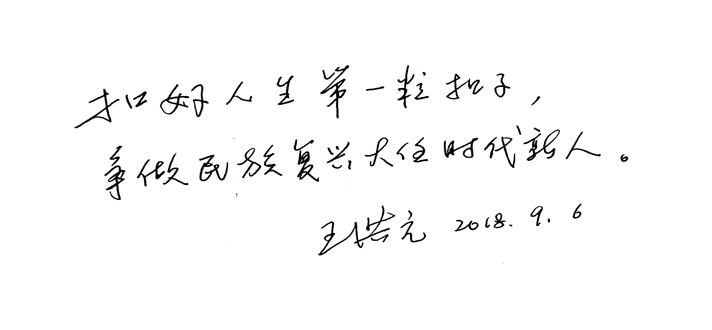 扣好人生第一粒扣子，
争做民族复兴大任时代新人。
王浩元 2018.9.6